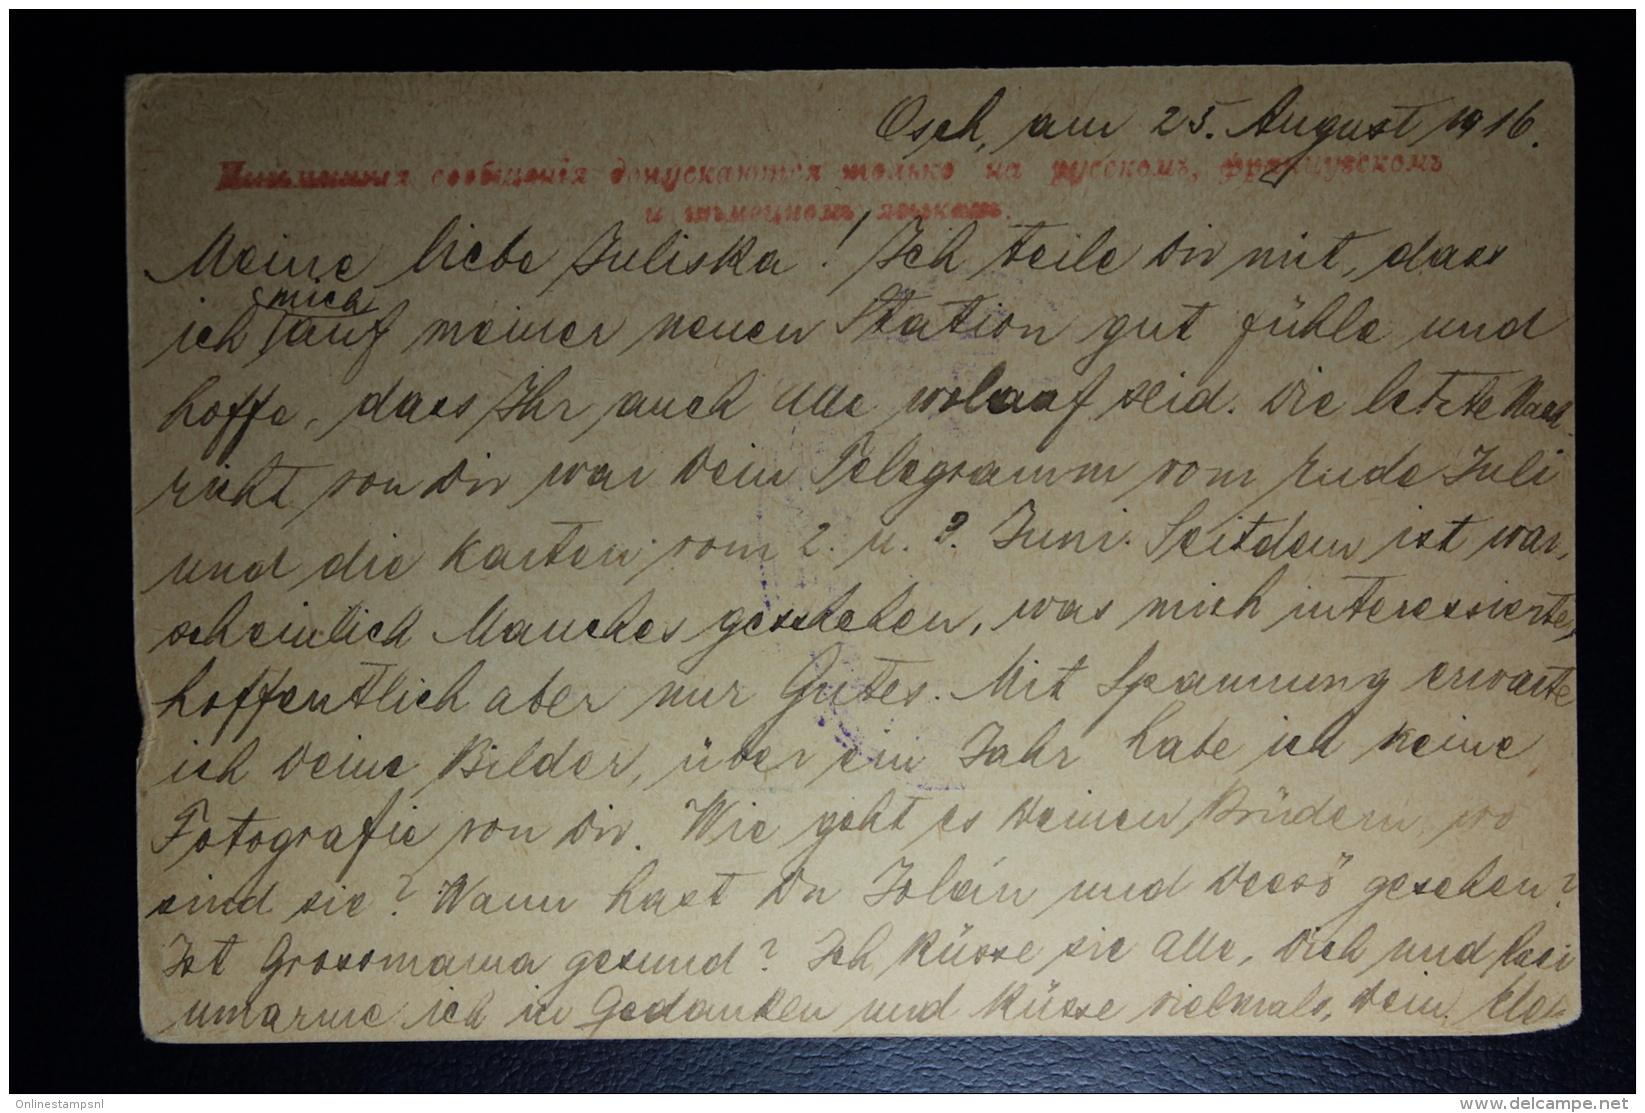 Osch, am 25. August 1916.
Письменныя сообщенія допускаются только на русскомъ, французскомъ
и нѣмецкомъ языкахъ.
Meine liebe Juliska! Ich teile Dir mit, dass
mich
ich auf meiner neuen Station gut fühle und
hoffe, dass Ihr auch Alle wolauf seid. Die letzte Nach
richt von Dir war Dein Telegramm vom Ende Juli
und die Karten vom 2. u. 9. Juni. Seitdem ist war,
scheinlich Manches geschehen, was mich interessierte,
hoffentlich aber nur Gutes. Mit Spannung erwarte
ich Deine Bilder, über ein Jahr habe ich keine
Fotografie von Dir. Wie geht es Deinen Brüdern, wo
sind sie? Wann hast Du Jolán und Dezsö gesehen?
Ist Grossmama gesund? Ich küsse sie Alle, Dich und
umarme ich in Gedanken und küsse vielmals, Dein
Onlinestampsnl
delcampe.net